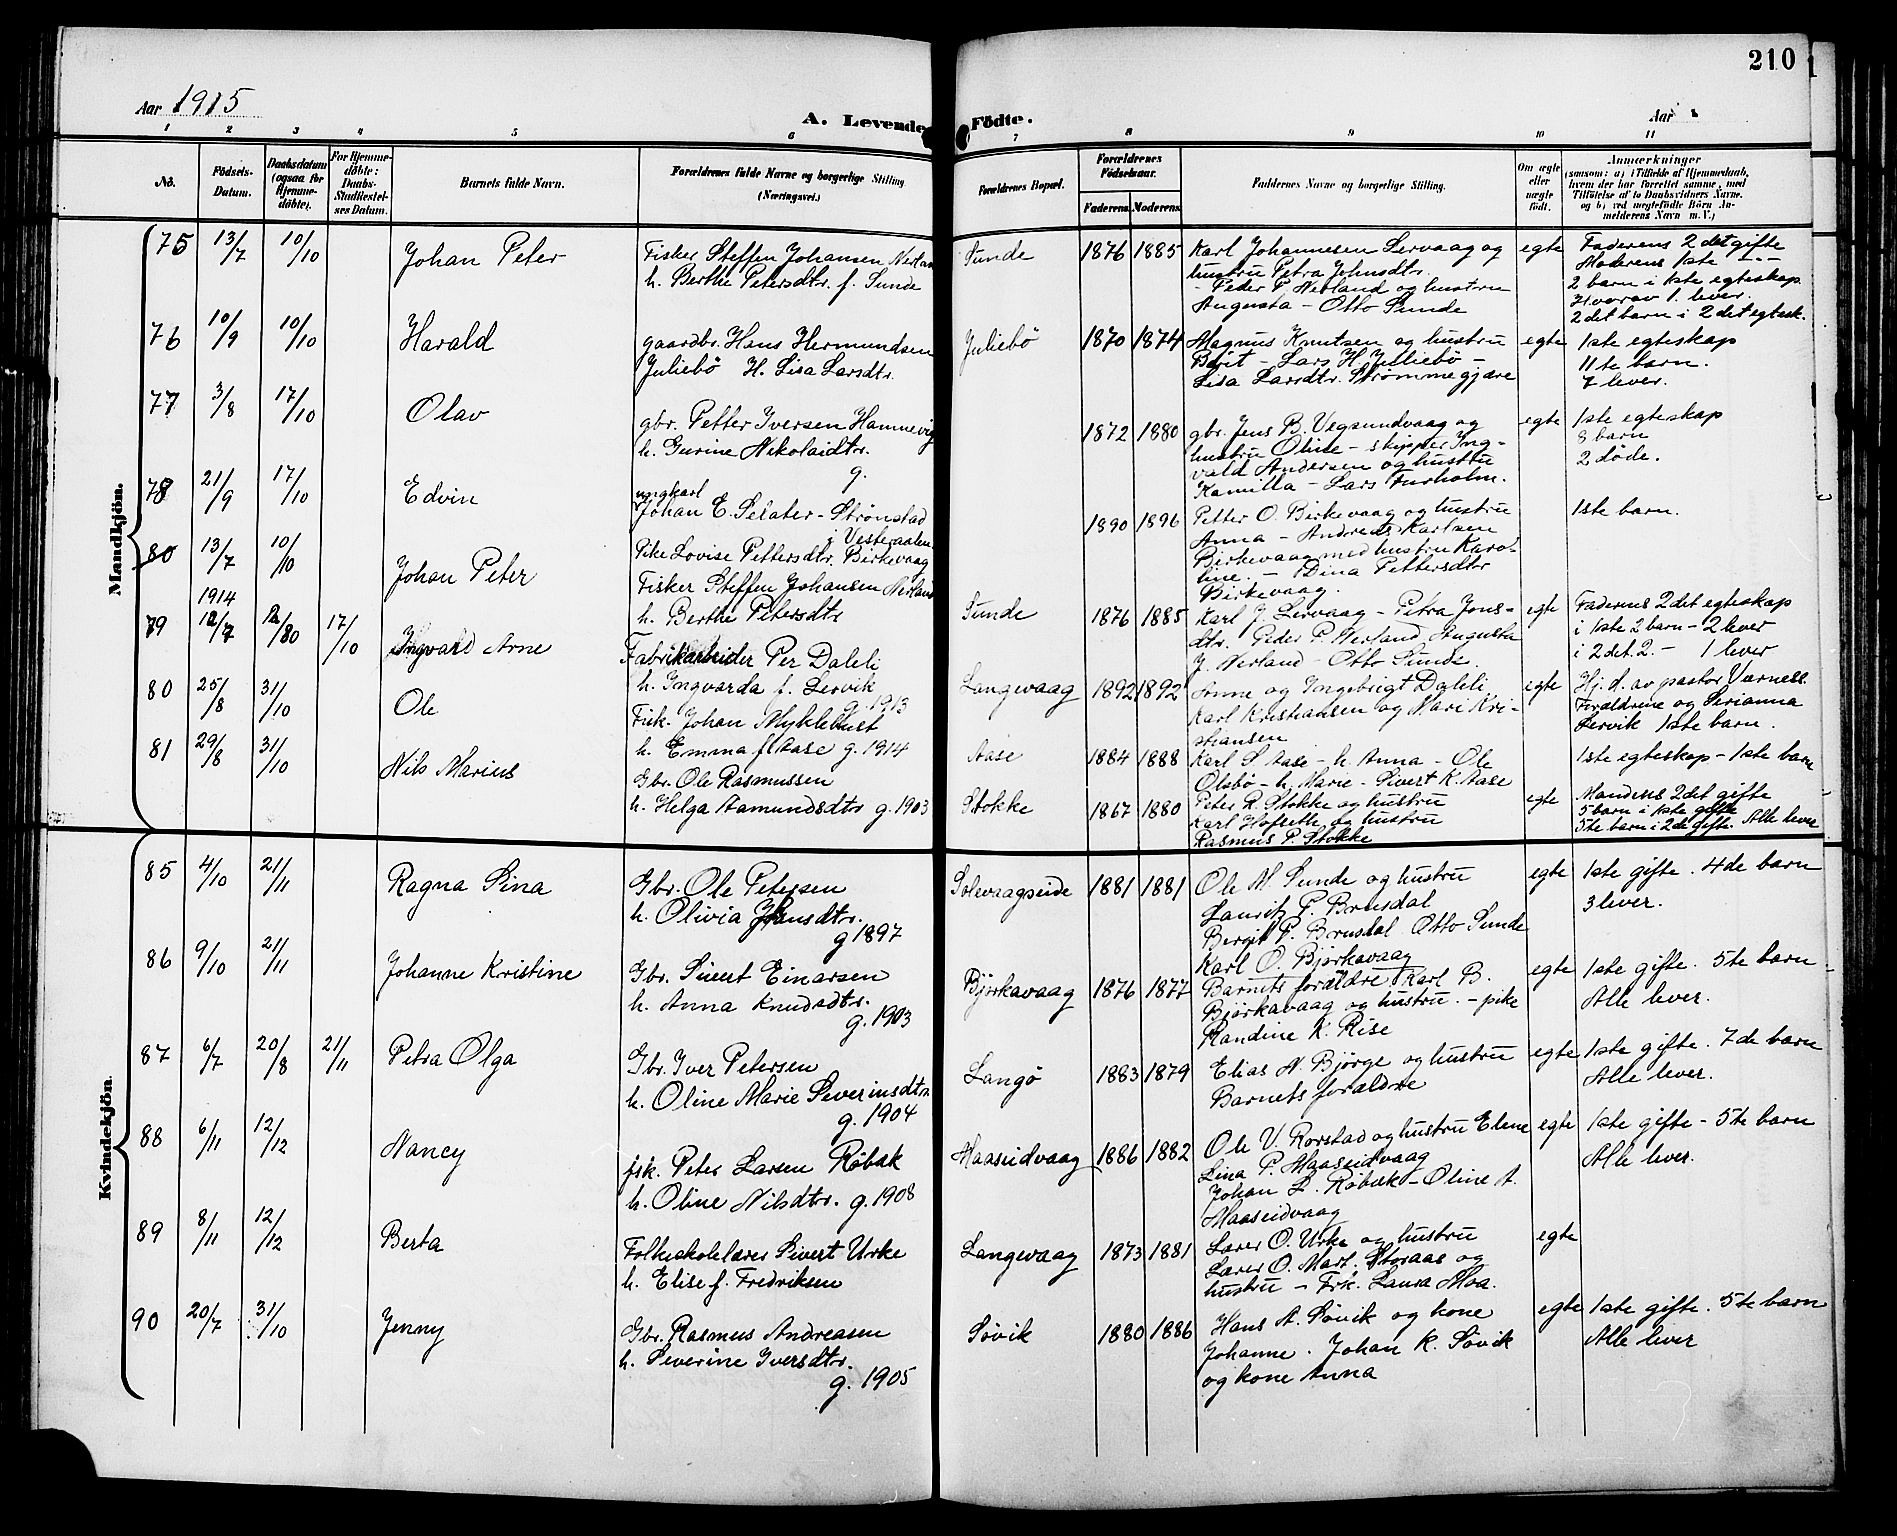 210
Aar 1915
A. Levende Födte.
Aar
1 2 3 4 5 6 7 8 9 10 11
No. Födsels-Datum. Daabsdatum (ogsaa for Hjemme-döbte). For Hjemme-döbte: Daabs-Stadfæstel-ses Datum. Barnets fulde Navn. Forældrenes fulde Navne og borgerlige Stilling (Næringsvei.) Forældrenes Bopæl. Forældrenes Födselsaar. Faderens. Moderens. Faddernes Navne og borgerlige Stilling. Om ægte eller uægte födt. Anmærkninger (saasom: a) i Tilfælde af Hjemmedaab, hvem der har forrettet samme, med Tilföielse af to Daabsvidners Navne. og b) ved uægtefödte Börn An-melderens Navn m. V.)
Mandkjön.
75 13/7 10/10 Johan Peter
Fisker Steffen Johansen Nerlan
h. Berthe Petersdtr. f. Sunde
Sunde 1876 1885
Karl Johannesen Lervaag og
hustru Petra Johnsdtr.
- Peder P. Nerland og hustru
Augusta - Otto Sunde
egte
Faderens 2det gifte
Moderens 1ste -"-
2 barn i 1ste egteskap
Hvorav 1. lever.
2det barn i 2det egtesk.
76 10/9 10/10 Harald
gaardbr. Hans Hermundsen
Juliebø H. Lisa Larsdtr.
Juliebö 1870 1874
Magnus Knutsen og hustru
Brit - Lars H. Juliebö -
Lisa Larsdtr. Strømmegjære
egte
1ste egteskap
11te barn.
7 lever.
77 3/8 17/10 Olav
gbr. Petter Iversen Hamnevig
h. Gurine Nikolaidtr.
g.
1872 1880
gbr. Jens B. Vegsundvaag og
hustru Oline - skipper Ing-
vald Andersen og hustru
Kamilla - Lars Furholm.
egte
1ste egteskap
8 barn
2 døde.
78 21/9 17/10 Edvin
ungkarl
Johan E. Selater - Strønstad
i Vesteraalen
Pike Lovise Pettersdtr. Birkevaag
1890 1896
Petter O. Birkevaag og hustru
Anna - Andreas Karlsen
Birkevaag med hustru Karo-
line. - Dina Pettersdtr
Birkevaag.
1ste barn.
80 13/7 10/10 Johan Peter
Fisker Steffen Johansen Nerland
h. Berthe Petersdtr
Sunde 1876 1885
Karl J. Lervaag - Petra Jons-
dtr. Peder P. Nerland, Augusta
J. Nerland - Otto Sunde.
egte
Faderens 2det egteskap
i 1ste 2 barn - 2 lever
i 2det 2. - 1 lever
1914
79 12/7 17/10 Ingvald Arne
Fabrikarbeider Per Daleli
h. Ingvarda f. Lervik
g. 1913
Langevaag 1892 1892
Anne og Ingebrigt Dalili
Karl Kristiansen og Mari Kri-
stiansen
egte
Hj. d. av pastor Varness.
Forældrene og Serianna
Lervik 1ste barn.
80 25/8 31/10 Ole
Fisk. Johan Myklebust
h. Emma f. Aase g. 1914
Aase 1884 1888
Karl S Aase - h Anna - Ole
Olsbø - h. Marie - Sivert K. Aase
1ste egteskap - 1ste barn
81 29/8 31/10 Nils Marius
Gbr. Ole Rasmussen
h. Helga Aamundsdtr g. 1903
Stokke 1867 1880
Peter R. Stokke og hustru
Karl Hofseth og hustru
Rasmus P. Stokke
egte
Mandens 2det gifte
5 barn i 1ste gifte
5te barn i 2de gifte. Alle lever
Kvindekjön.
85 4/10 21/11 Ragna Sina
Gbr. Ole Petersen
h. Olivia Jansdtr.
g 1897
Solevaagseide 1881 1881
Ole M. Sunde og hustru
Lauritz P. Brusdal
Bergit P. Brusdal Otto Sunde
Karl O. Bjørkavaag
egte
1ste gifte. 4de barn
3 lever.
86 9/10 21/11 Johanne Kristine
Gbr. Sivert Einarsen
h. Anna Knudsdtr.
g. 1903
Bjørkavaag 1876 1877
Barnets forældre Karl B.
Bjørkavaag og hustru. - pike
Randine K. Rise
egte
1ste gifte. 5te barn
Alle lever.
87 6/7 20/8 21/11 Petra Olga
Gbr. Iver Petersen
h. Oline Marie Severinsdtr.
g. 1904
Langø 1883 1879
Elias N. Bjørge og hustru
Barnets forældre
egte
1ste gifte. 7de barn
Alle lever.
88 6/11 12/12 Nancy
fsk. Peter Larsen Røbæk
h. Oline Nilsdtr. g. 1908
Maaseidvaag 1886 1882
Ole V. Rorstad og hustru Elene
Lina P. Maaseidvaag
Johan L. Røbæk - Oline A.
Maaseidvaag
egte
1ste gifte - 5te barn
Alle lever.
89 8/11 12/12 Berta
Folkeskolelærer Sivert Urke
h. Elise f. Fredriksen
Langevaag 1873 1881
Lærer O. Urke og hustru
Lærer O. Mart. Storaas og
hustru - Frk. Laura Moa.
egte
90 20/7 31/10 Jenny
Gbr. Rasmus Andreasen
h. Severine Iversdtr.
g. 1905
Søvik 1880 1886
Hans A. Søvik og kone
Johanne. Johan K. Søvik
og kone Anna
egte
1ste gifte. 5te barn
Alle lever